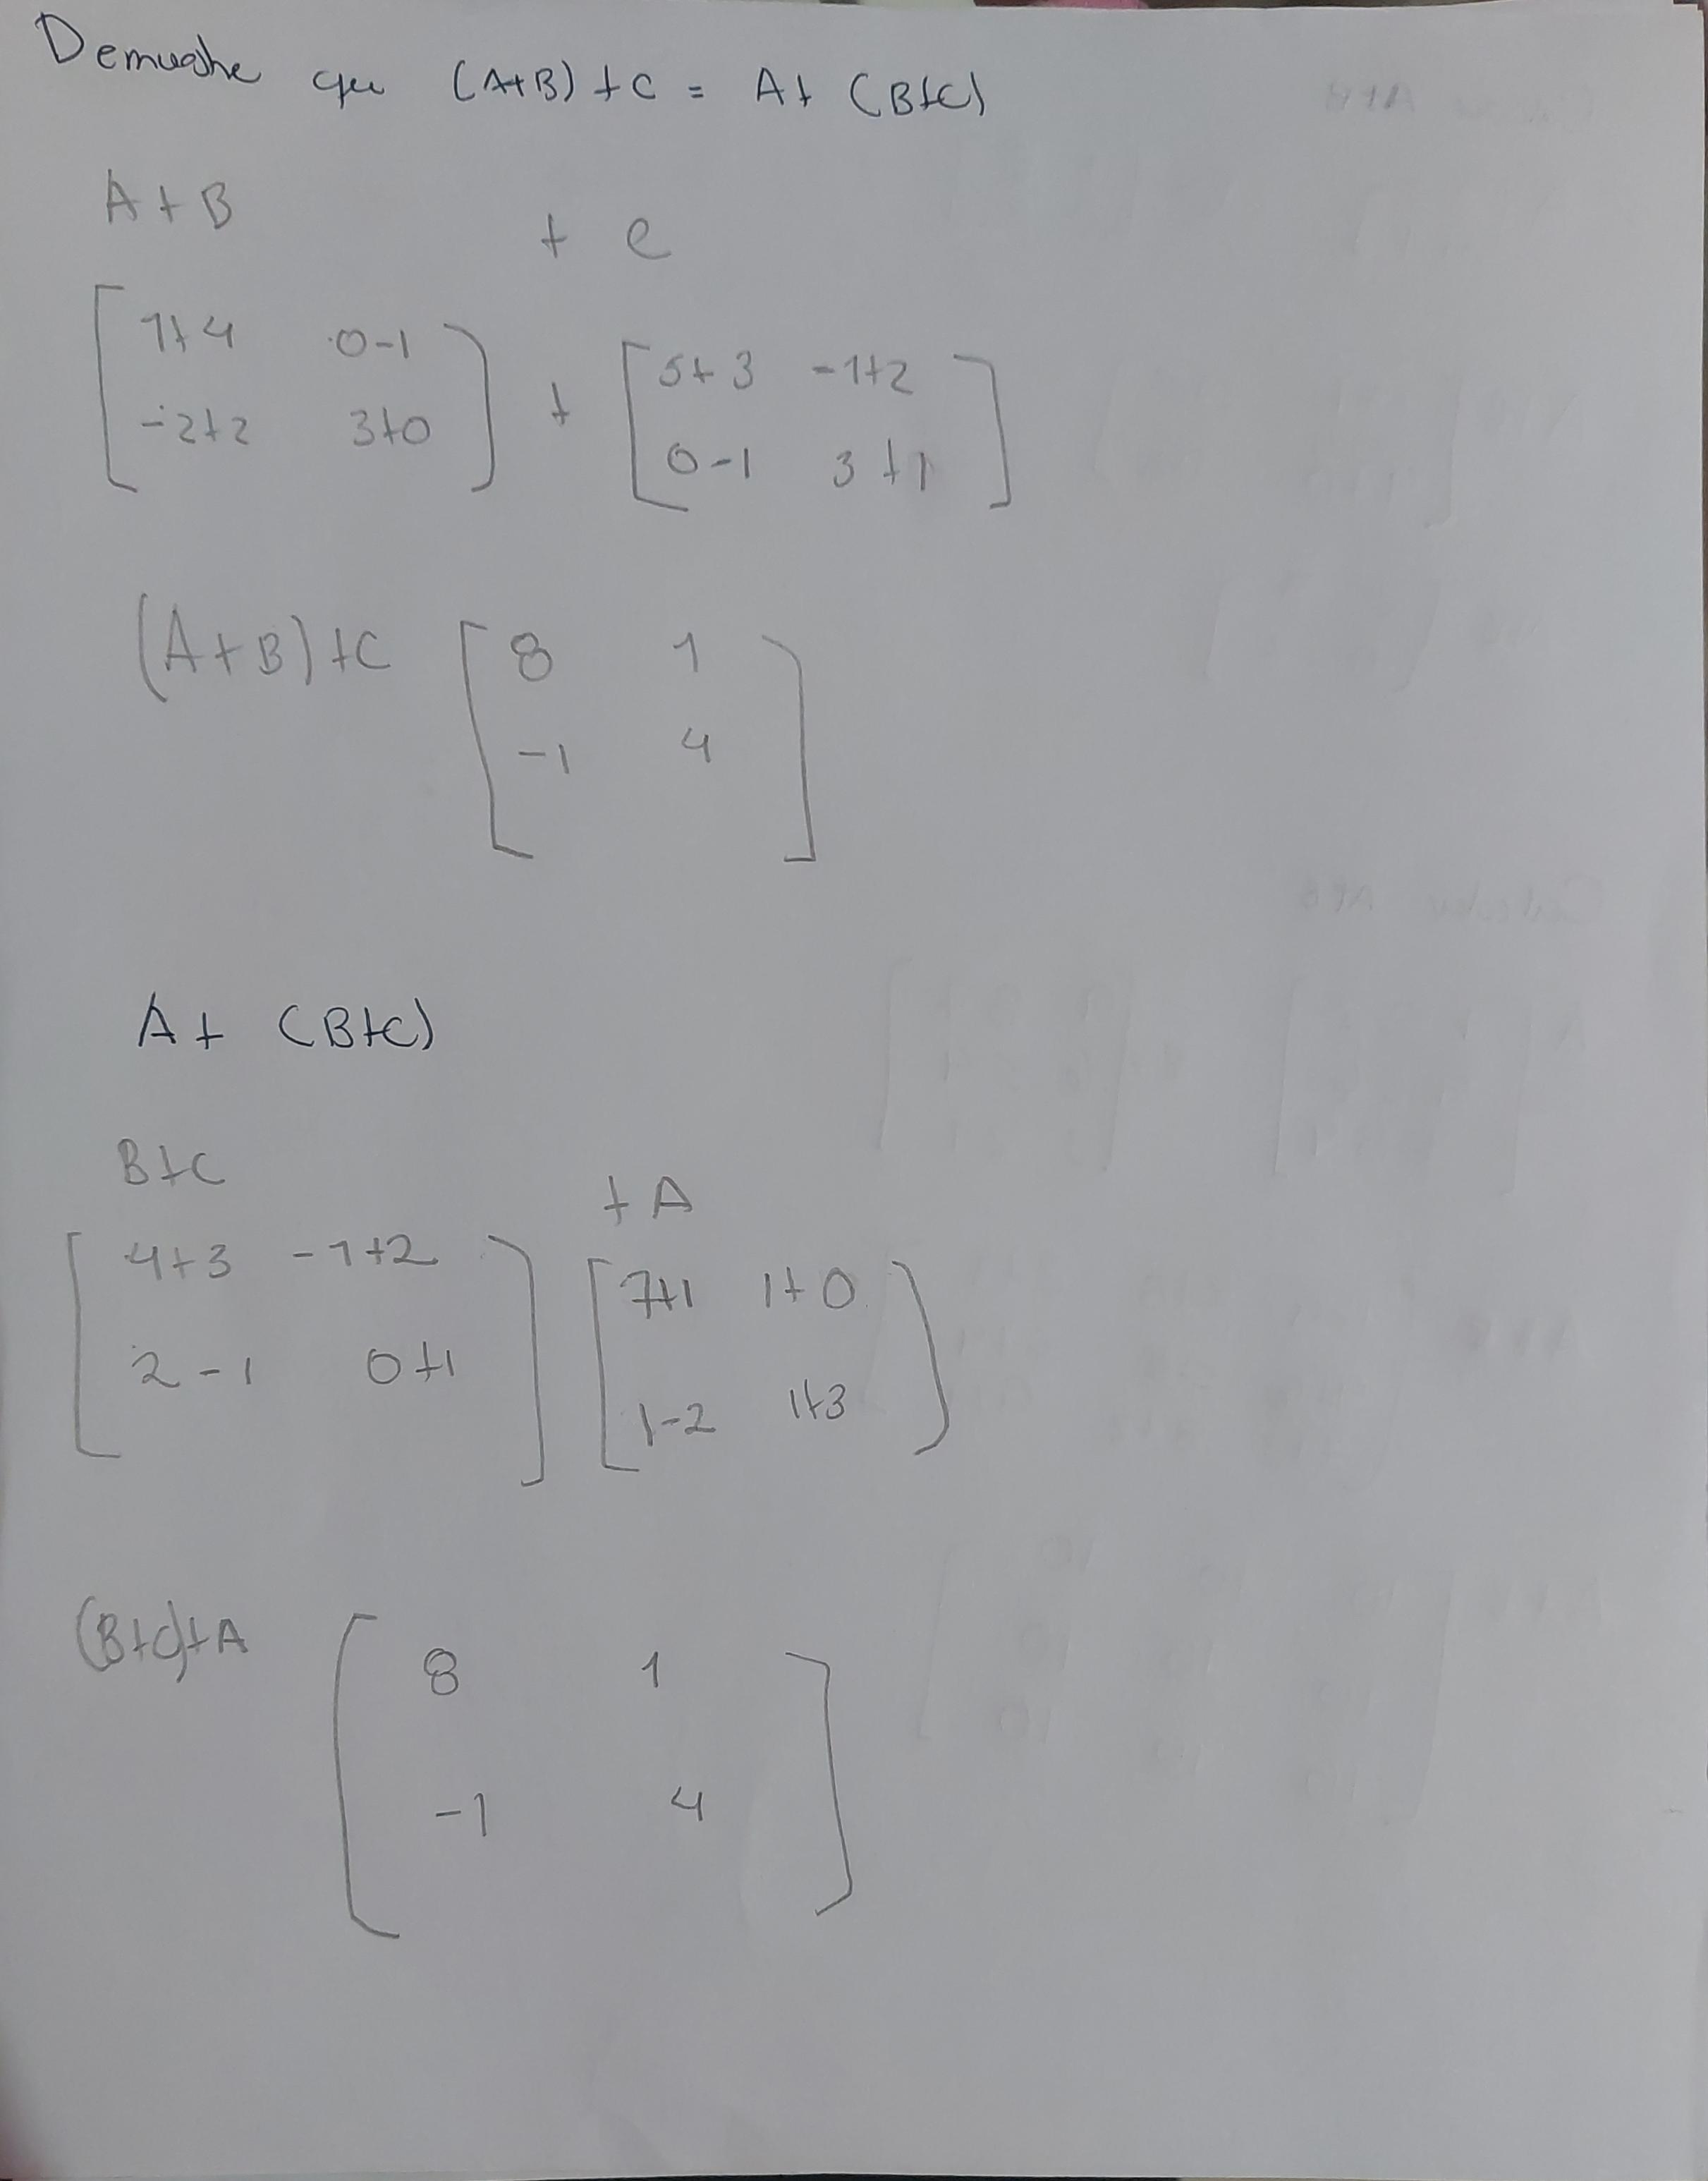 Demuestre que (A+B)+C = A+ (B+C)
A+B + C
1+4 0-1
-2+2 3+0
+
5+3 -1+2
0-1 3+1
(A+B)+C
8 1
-1 4
A+ (B+C)
B+C + A
4+3 -1+2
2-1 0+1
7+1 1+0
1-2 1+3
(B+C)+A
8 1
-1 4